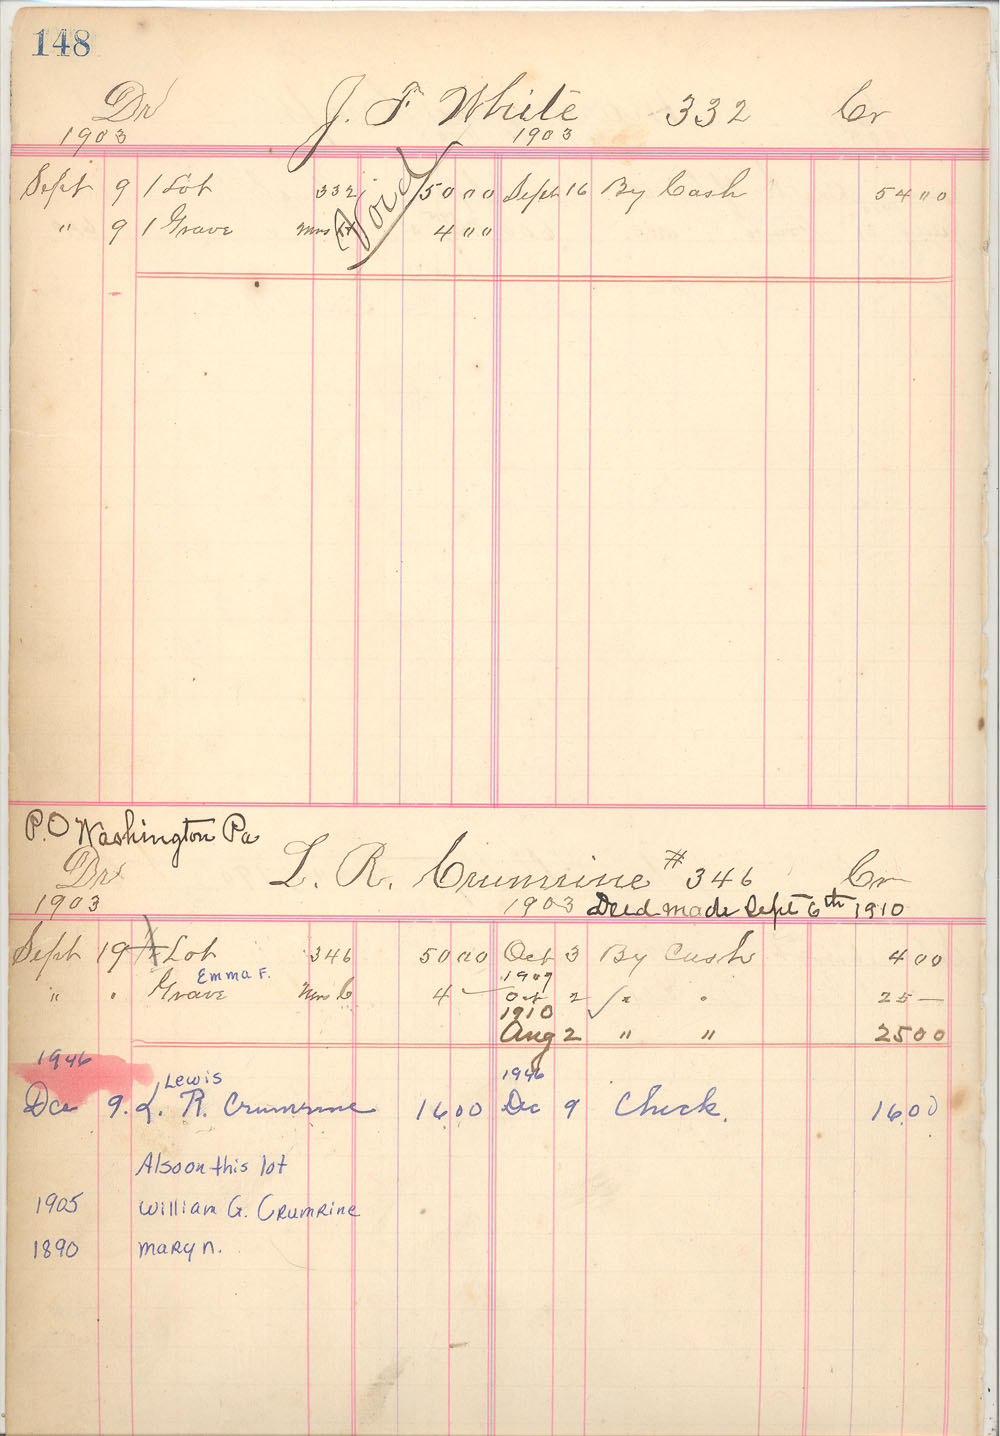 148
Dr J. F White 332 Cr
1903 1903
Sept 9 1 Lot 332 50 00 Sept 16 By Cash 54 00
" 9 1 Grave Mrs 4 00
Paid
P.O Washington Pa
Dr L. R. Crumrine # 346 Cr
1903 1903 Deed made Sept 6th 1910
Sept 19 1 Lot 346 50 00 Oct 3 By Cash 4 00
Emma F. 1909
" " Grave Mrs C 4 — Oct 2 ✓ " " 25 —
1910
Aug 2 " " 25 00
1946 Lewis 1946
Dec 9. L. R. Crumrine 16.00 Dec 9 Check. 16.00
Also on this lot
1905 William G. Crumrine
1890 Mary N.